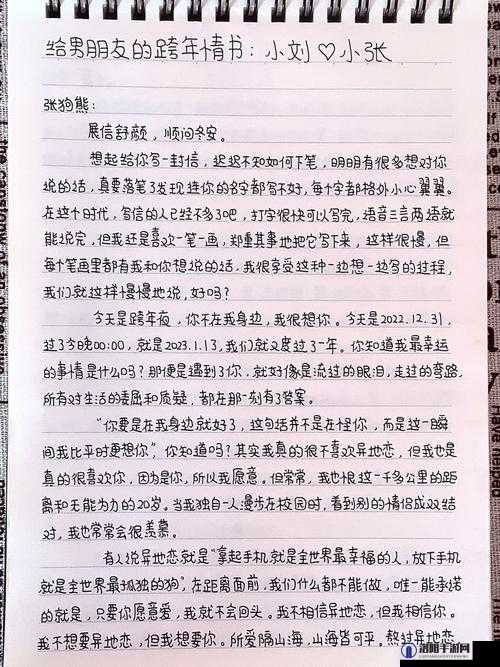 给男朋友的跨年情书：小刘♡小张
张狗熊：
展信舒颜，顺问冬安。
想起给你写一封信，迟迟不知如何下笔，明明有很多想对你
说的话，真要落笔了发现连你的名字都写不好，每个字都格外小心翼翼。
在这个时代，写信的人已经不多了吧，打字很快可以写完，语音三言两语就
能说完，但我还是喜欢一笔一画，郑重其事地把它写下来，这样很慢，但
每个笔画里都有我和你想说的话，我很享受这种一边想一边写的过程，
我们就这样慢慢地说，好吗？
今天是跨年夜，你不在我身边，我很想你。今天是2022.12.31，
过了今晚00:00，就是2023.1.1了，我们就又度过了一年。你知道我最幸运
的事情是什么吗？那便是遇到了你，就好像是流过的眼泪，走过的弯路，
所有对生活的委屈和质疑，都在那一刻有了答案。
“你要是在我身边就好了，这句话并不是在怪你，而是这一瞬
间我比平时更想你”，你知道吗？其实我真的很不喜欢异地恋，但我也是
真的很喜欢你，因为是你，所以我愿意。但常常，我也恨这一千多公里的距
离和无能为力的20岁。当我独自一人漫步在校园时，看到别的情侣成双结
对，我也常常会很羡慕。
有人说异地恋就是“拿起手机就是全世界最幸福的人，放下手机
就是全世界最孤独的狗”，在距离面前，我们什么都不能做，唯一能承诺
的就是，只要你愿意爱，我就不会回头。我不相信异地恋，但我相信你。
我不想要异地恋，但我想要你。所爱隔山海，山海皆可平。熬过异地恋